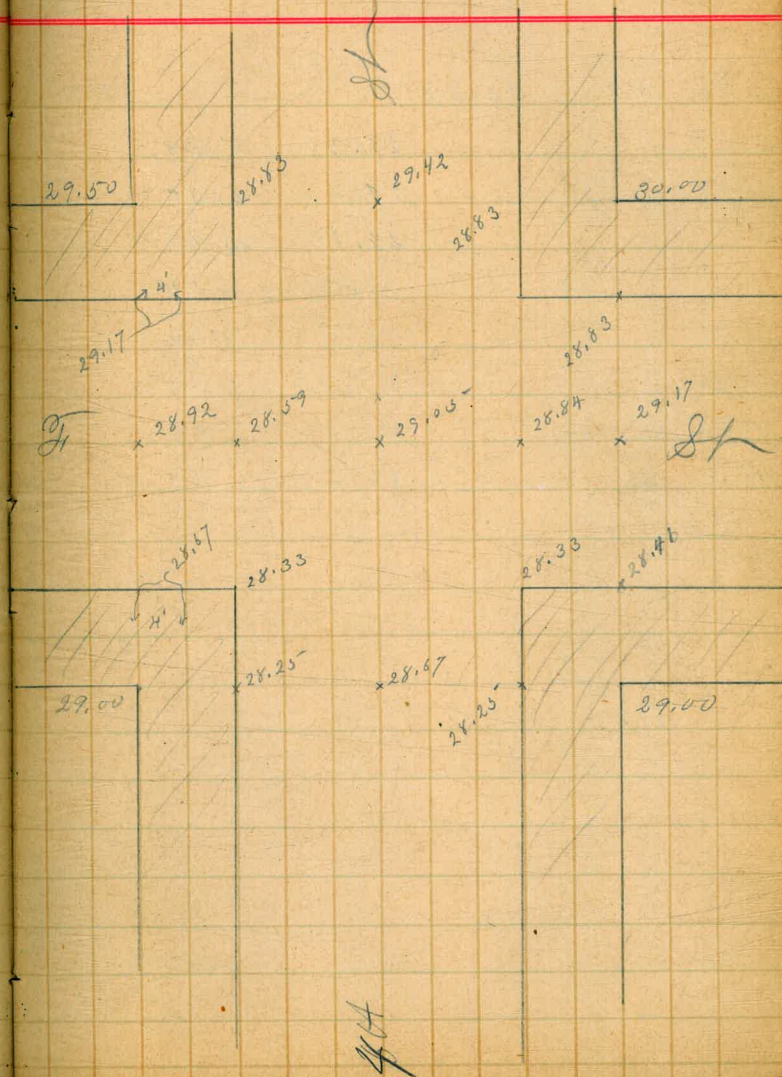 St
29.50
28.83
29.42
28.83
30.00
4'
29.17
28.83
F
28.92
28.59
29.05
28.84
29.17
St
28.67
28.33
28.33
28.46
4'
28.25
28.67
28.25
29.00
29.00
4th